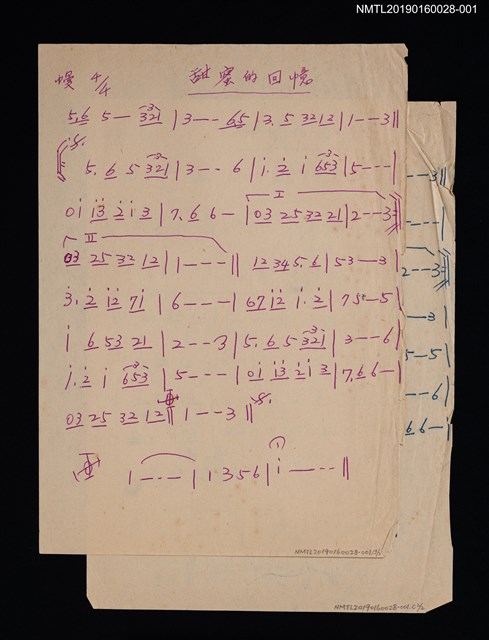 NMTL20190160028-001
慢 4/4 甜蜜的回憶
5.6 5— 321 | 3--- 65 | 3.5 3212 | 1--3 ||
𝄋 5.6 5 321 | 3--- 6 | 1.2 1 653 | 5--- |
01 13 2 1 3 | 7.6 6— | I 03 25 32 21 | 2--3
II 03 25 32 12 | 1--- || 12 34 5.6 | 53—3 |
3.2 12 71 | 6--- | 67 12 1.2 | 75—5 |
1 6 53 21 | 2--3 | 5.6 5 321 | 3--6 |
1.2 1 653 | 5--- | 01 13 2 1 3 | 7.6 6—
03 25 32 12 || 1--3 || 𝄋
1--- | 1 3 5 6 | 1--- ||
NMTL20190160028-001
--3 ||
---
2--3
—3 |
5—5 |
--6 |
6.6— |
NMTL20190160028-001